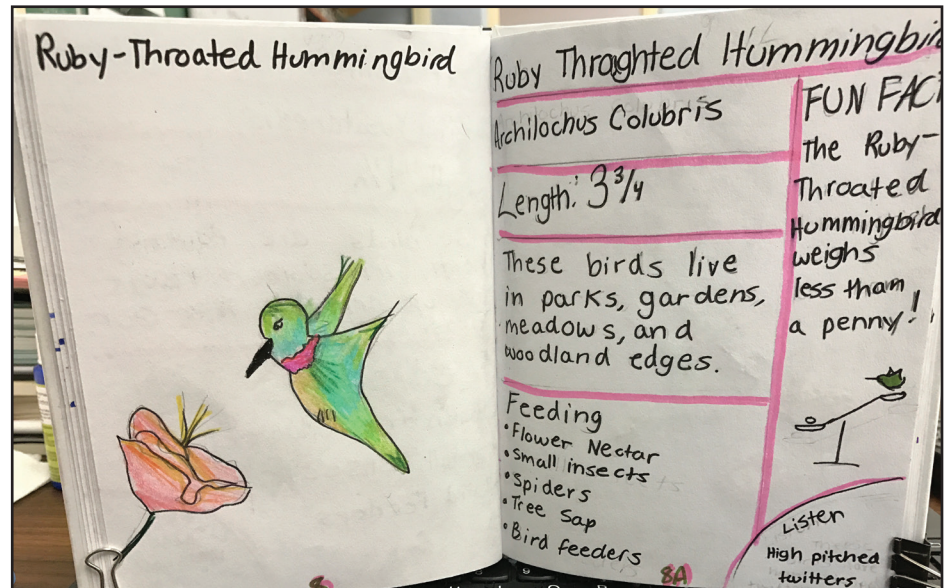 Ruby-Throated Hummingbird
8
Ruby Throghted Hummingbir
Archilochus Colubris
Length: 3 3/4
These birds live
in parks, gardens,
meadows, and
woodland edges.
Feeding
•Flower Nectar
•Small insects
•Spiders
•Tree Sap
•Bird feeders
FUN FAC
The Ruby-
Throated
Hummingbird
weighs
less than
a penny!
Listen
High pitched
twitters
8A